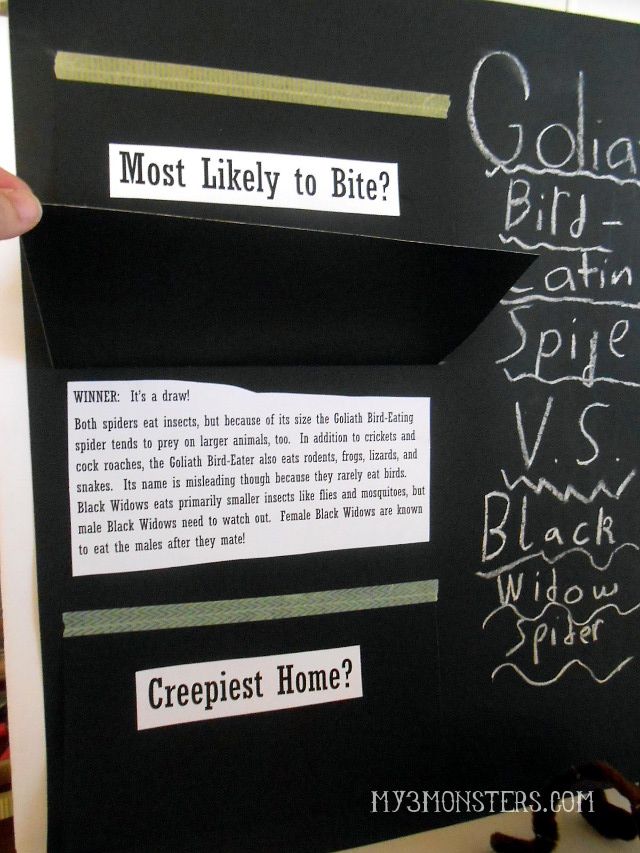 Most Likely to Bite?
WINNER: It's a draw!
Both spiders eat insects, but because of its size the Goliath Bird-Eating
spider tends to prey on larger animals, too. In addition to crickets and
cock roaches, the Goliath Bird-Eater also eats rodents, frogs, lizards, and
snakes. Its name is misleading though because they rarely eat birds.
Black Widows eats primarily smaller insects like flies and mosquitoes, but
male Black Widows need to watch out. Female Black Widows are known
to eat the males after they mate!
Creepiest Home?
Golia
Bird-
Eatin
Spide
V.S.
Black
Widow
Spider
MY3MONSTERS.COM